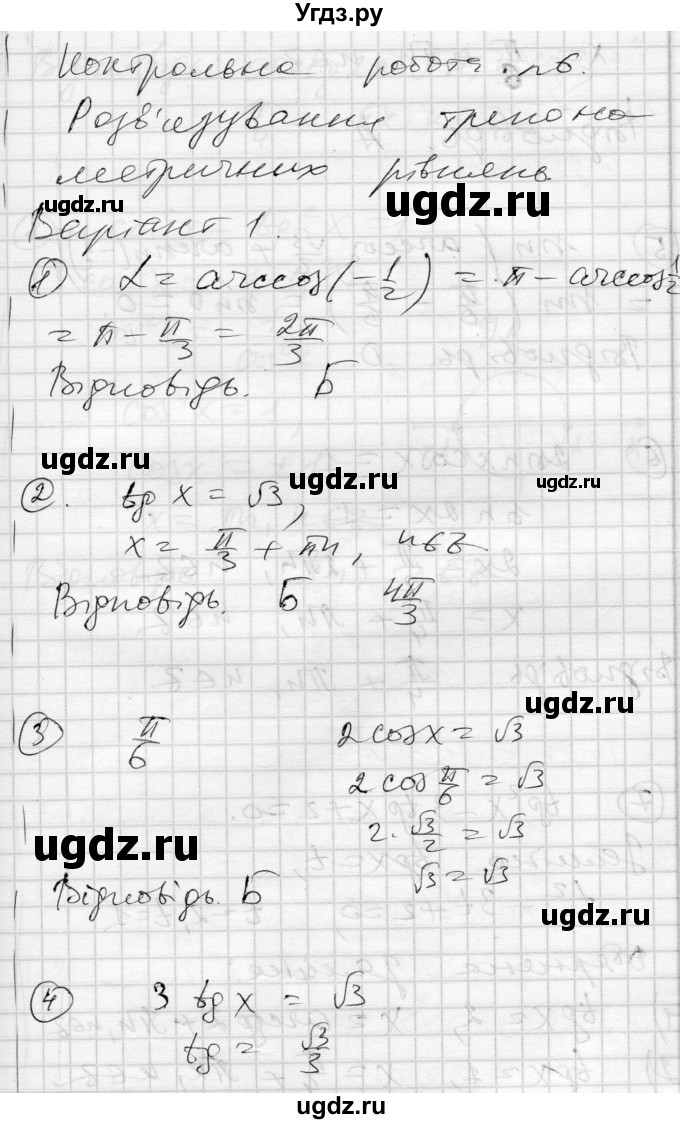 Угдз.ру
Контрольна робота №6.
Розв'язування тригоно-
метричних рівнянь
ugdz.ru ugdz.ru
Варіант 1. ugdz.ru
① α = arccos(-1/2) = π - arccos 1/2
= π - π/3 = 2π/3
Відповідь. Б
ugdz.ru ugdz.ru ugdz.ru
②. tg x = √3,
x = π/3 + πn, n∈Z
Відповідь. Б 4π/3
ugdz.ru
③ π/6 2 cos x = √3
2 cos π/6 = √3
2·√3/2 = √3
ugdz.ru
√3 = √3
Відповідь. Б
ugdz.ru
④ 3 tg x = √3
tg = √3/3
ugdz.ru